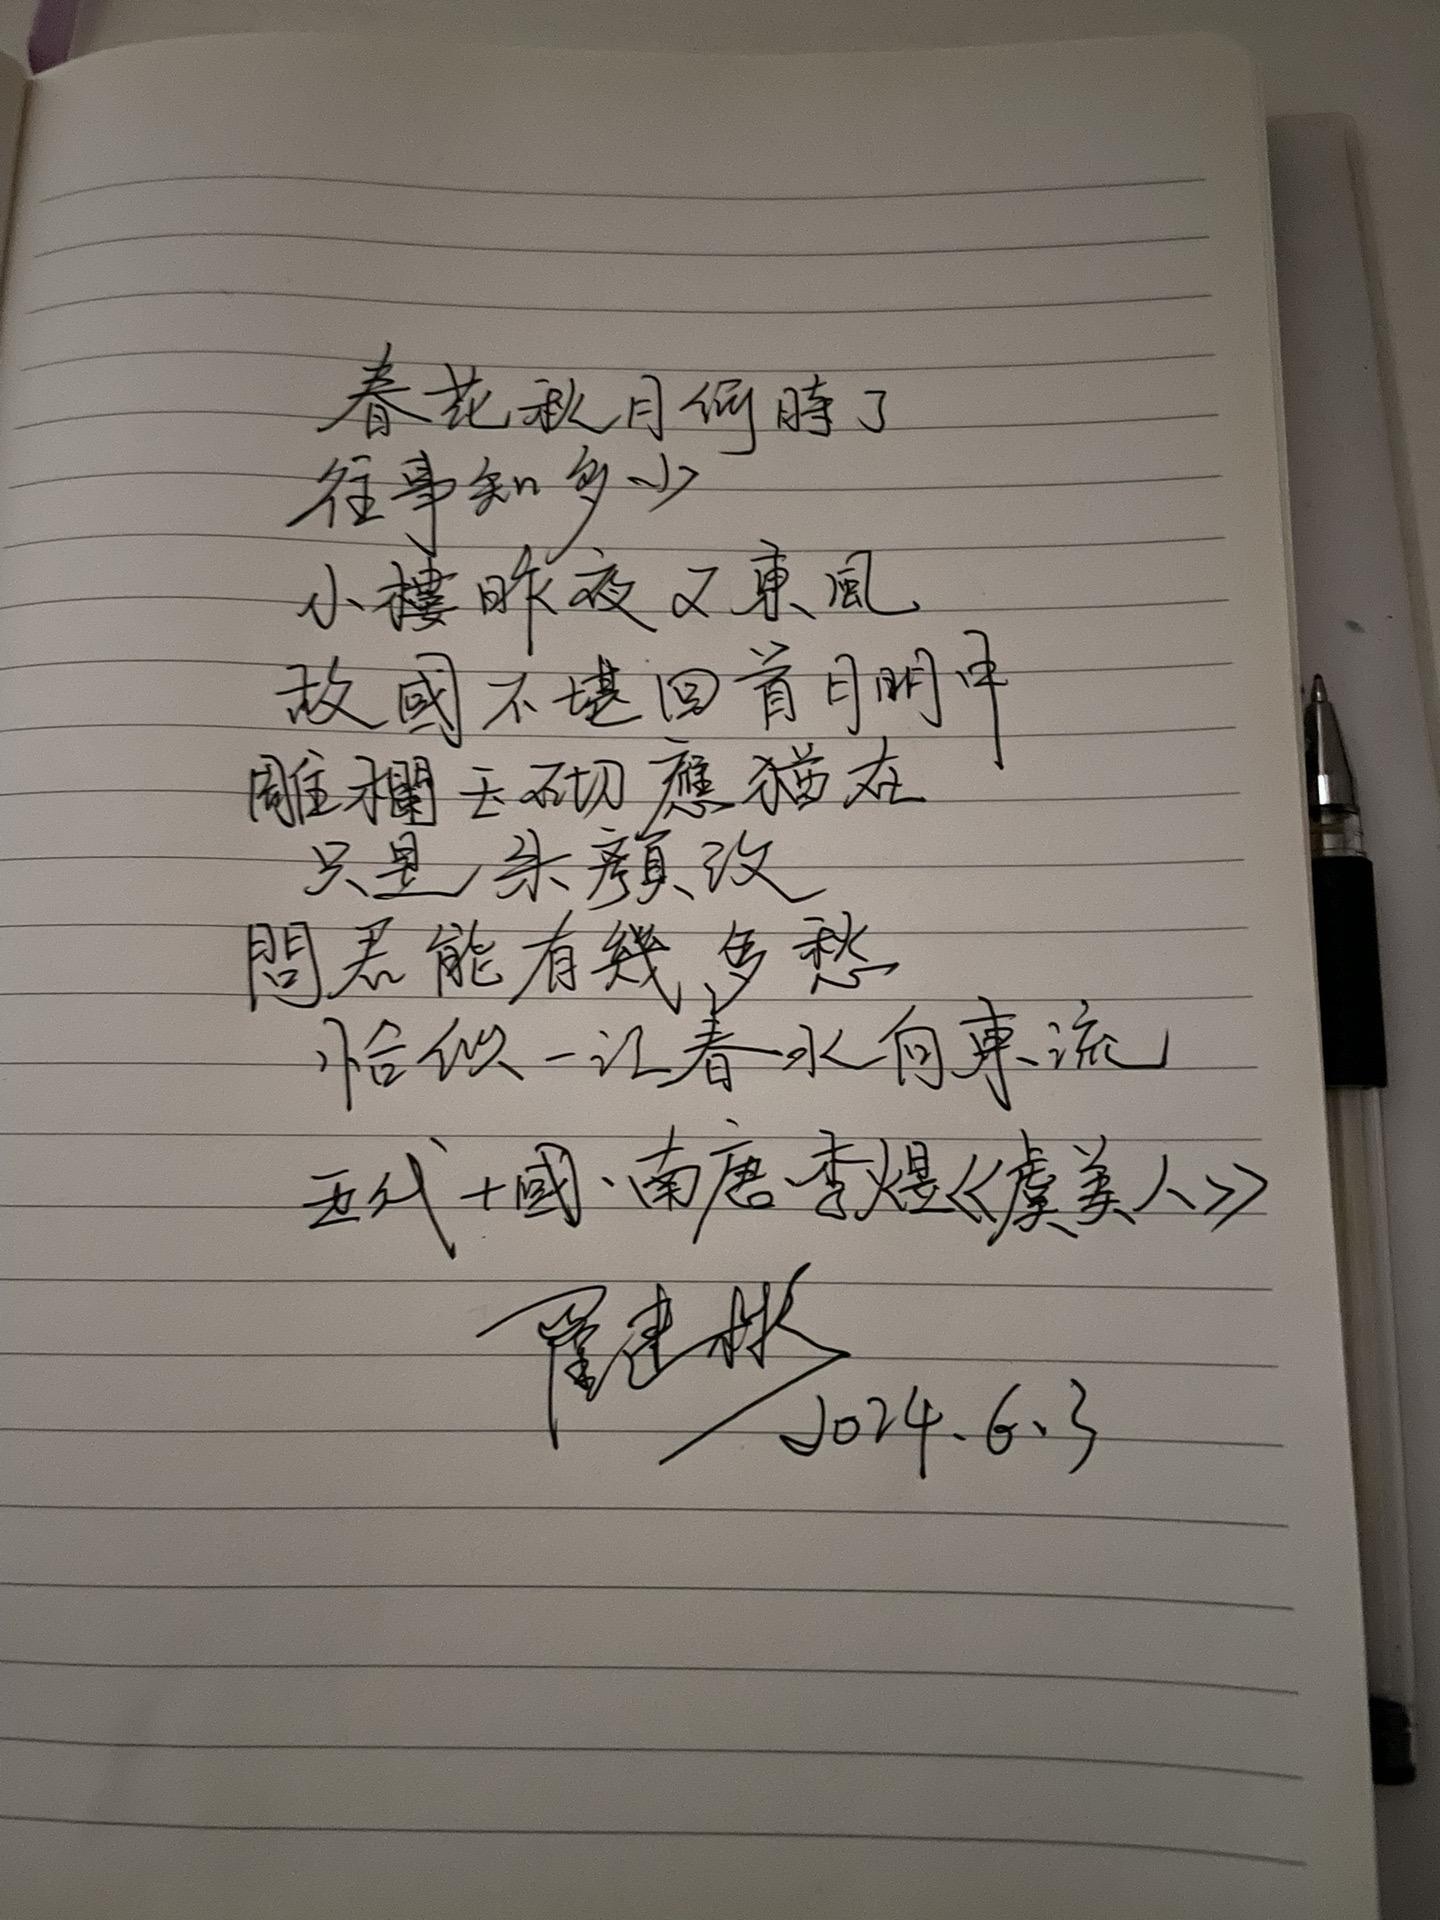 春花秋月何時了
往事知多少
小樓昨夜又東風
故國不堪回首月明中
雕欄玉砌應猶在
只是朱顏改
問君能有幾多愁
恰似一江春水向東流
五代十國·南唐·李煜《虞美人》
建彬
2024.6.3